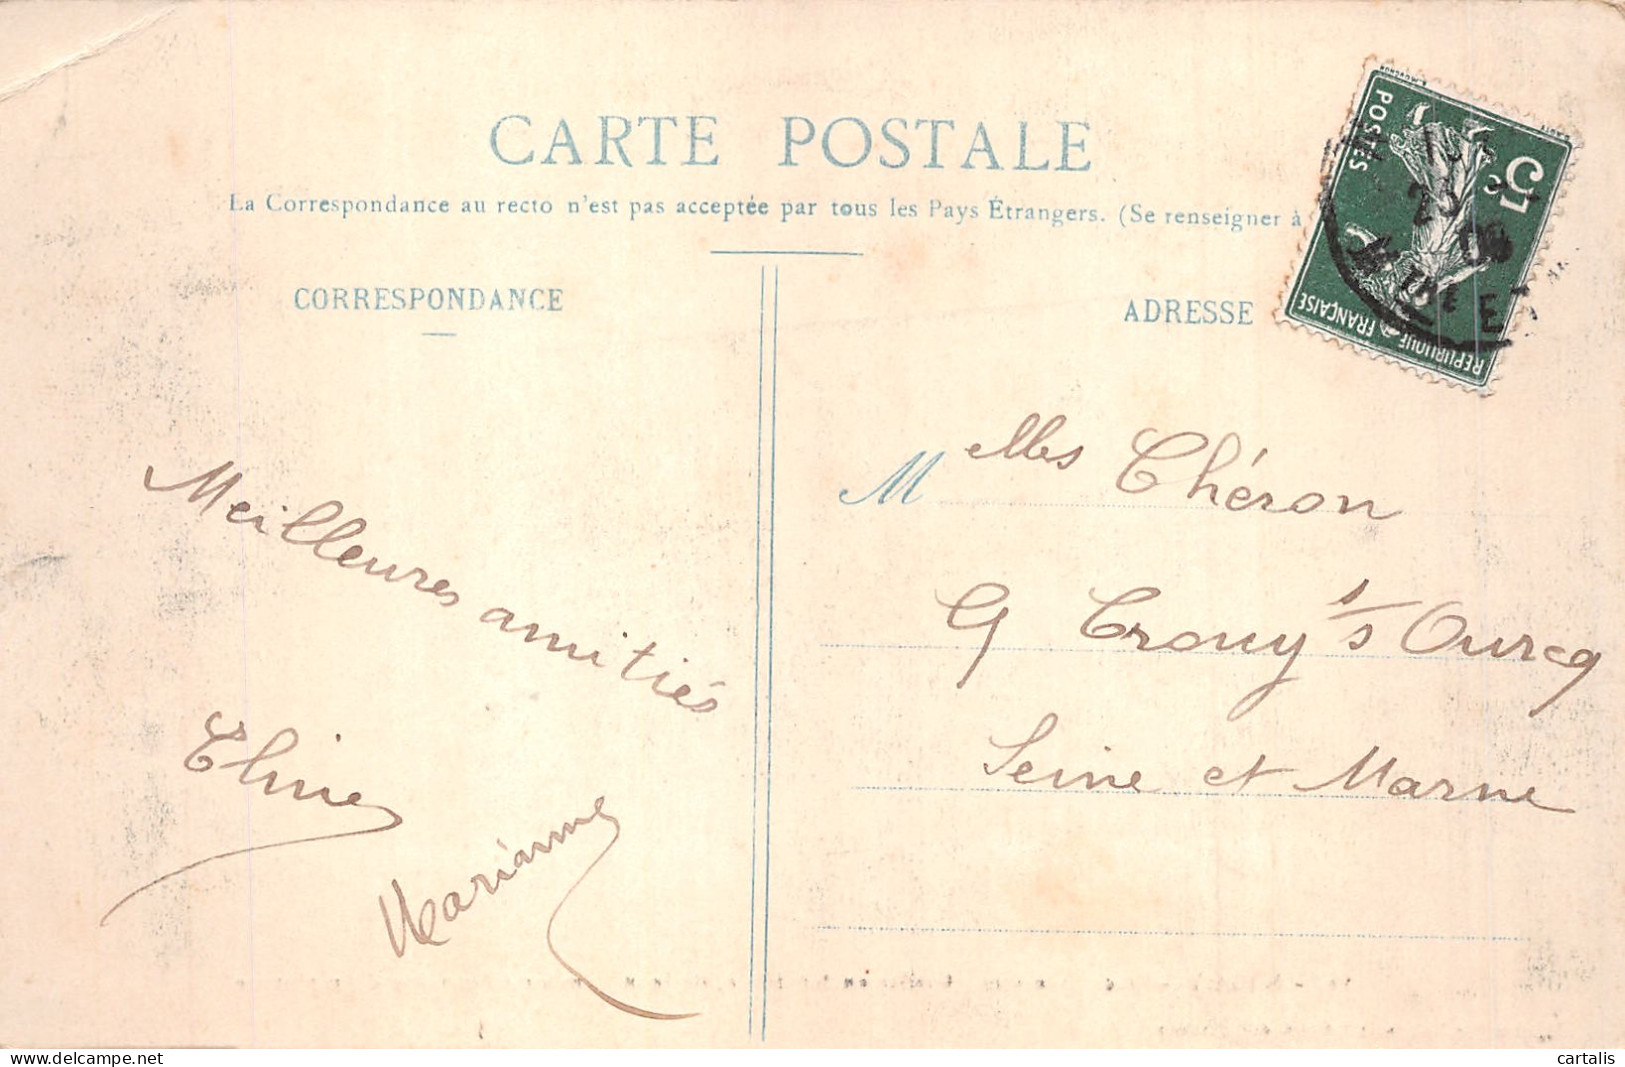 CARTE POSTALE
La Correspondance au recto n'est pas acceptée par tous les Pays Étrangers. (Se renseigner à
CORRESPONDANCE
ADRESSE
POSTES
5 c
REPUBLIQUE FRANÇAISE
Melles Chéron
Crouy s/s Ourcq
Seine et Marne
Meilleures amitiés
Marianne
cartalis